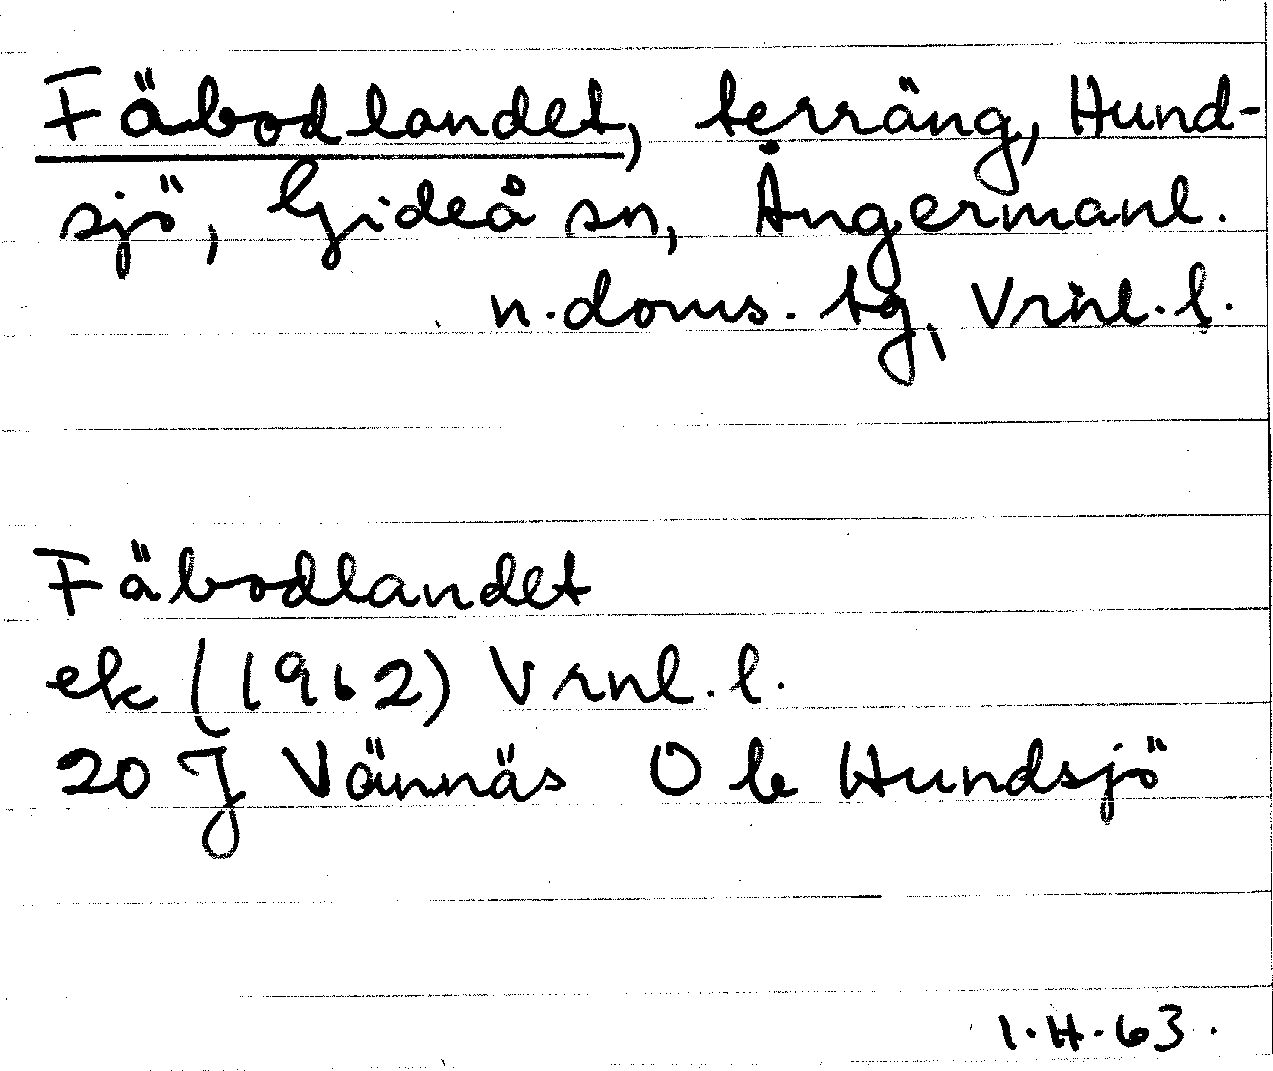 Fäbodlandet, terräng, Hund-
sjö, Gideå sn, Ångermanl.
n. doms. tg, Vrnl. l.
Fäbodlandet
ek (1962) Vrnl. l.
20 J Vännäs O b Hundsjö
I. H. 63.